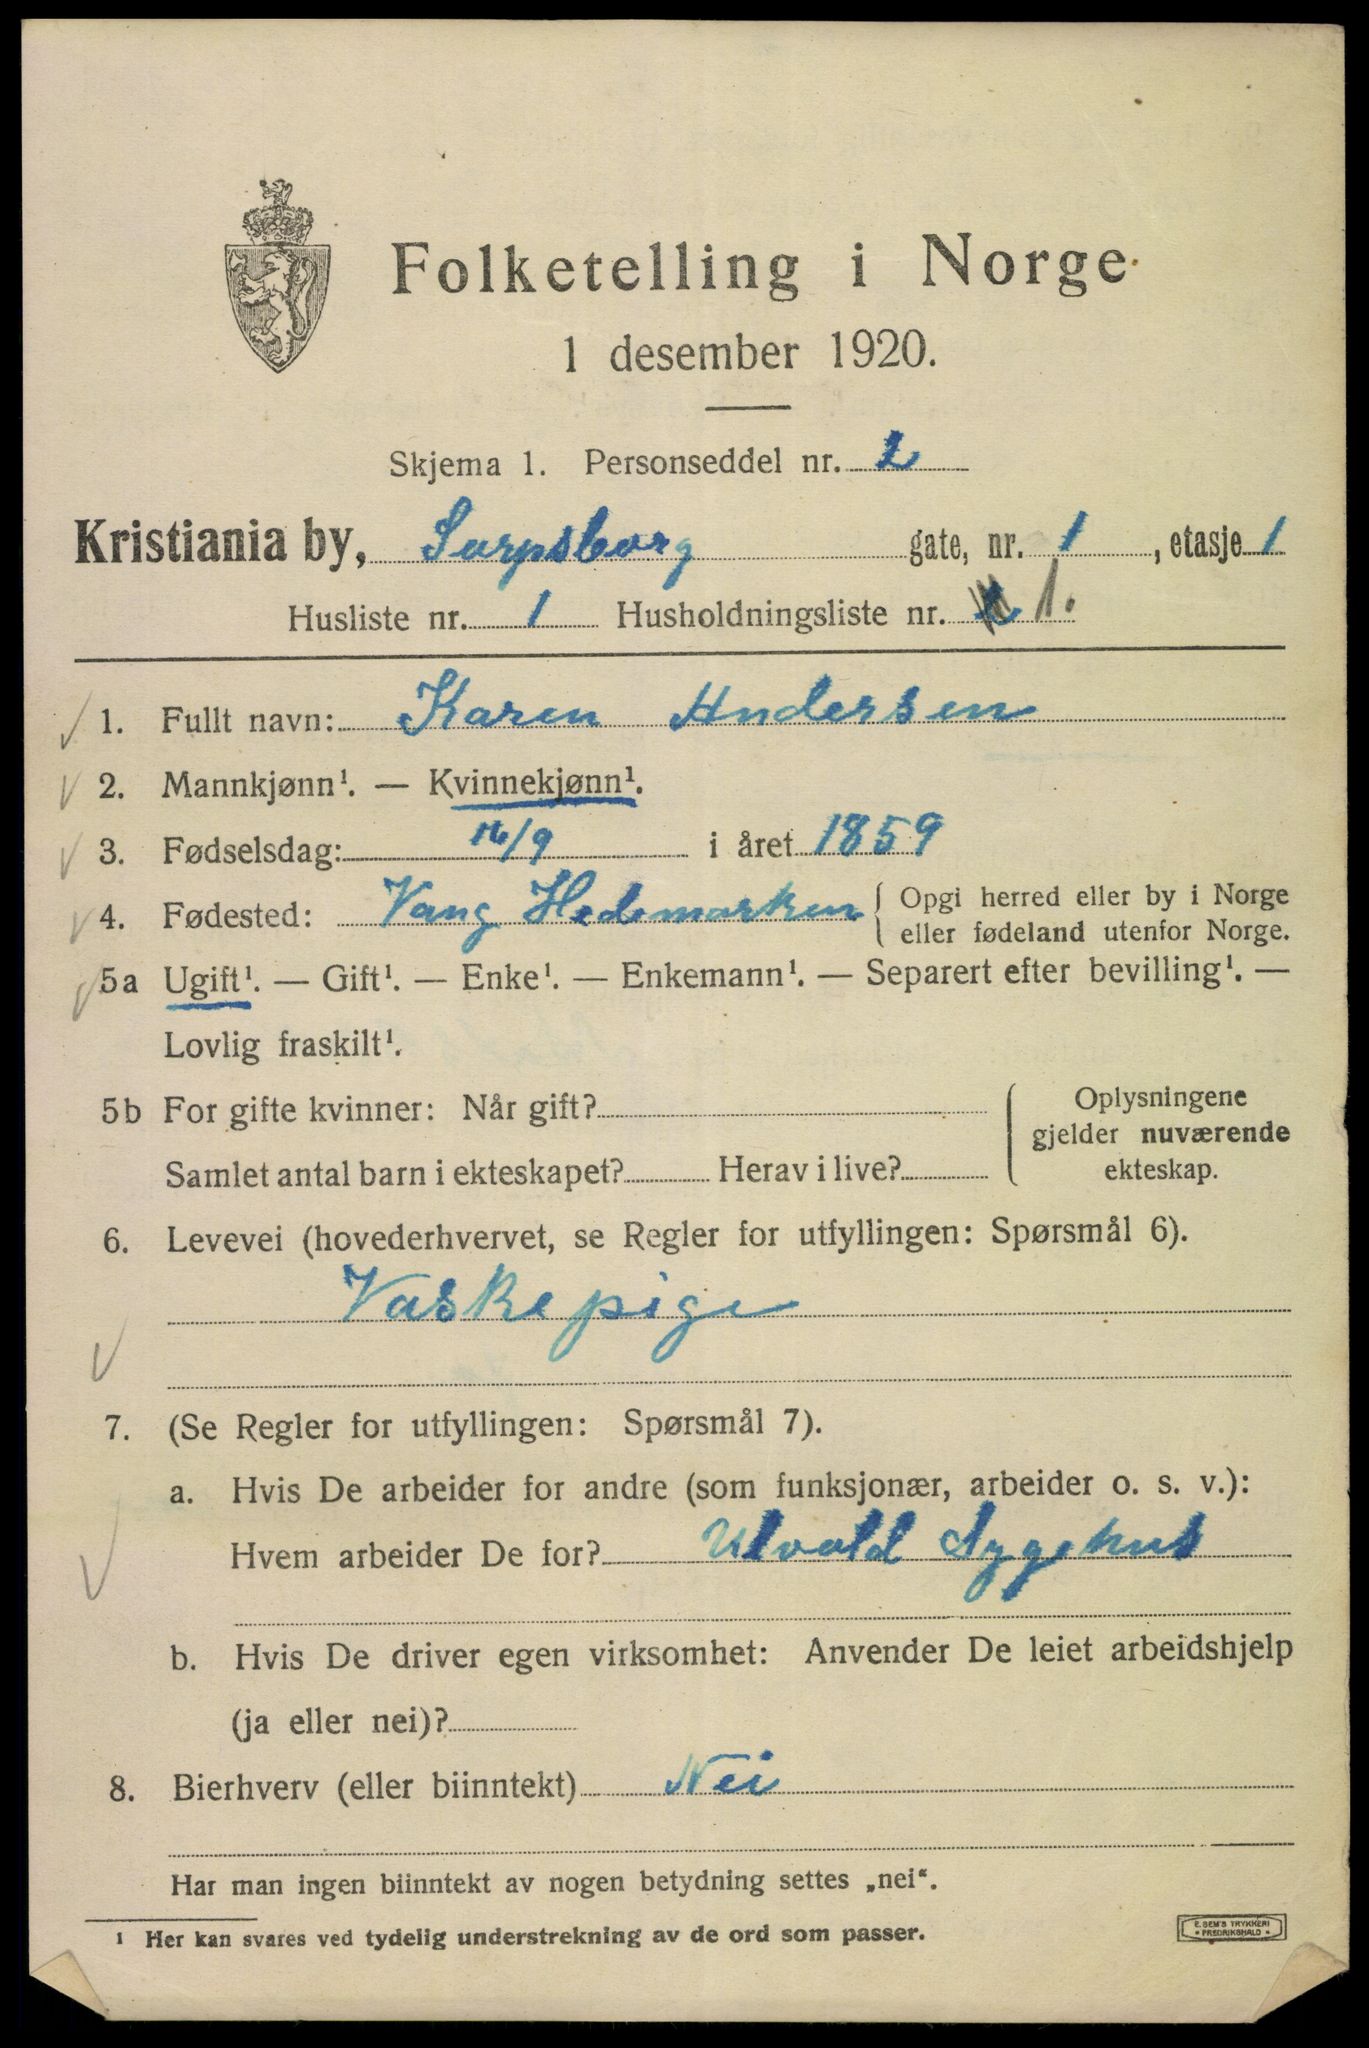 Folketelling i Norge
1 desember 1920.
Skjema 1. Personseddel nr. 2
Kristiania by, Sarpsborg gate, nr. 1, etasje 1
Husliste nr. 1 Husholdningsliste nr. 1.
1. Fullt navn: Karen Andersen
2. Mannkjønn¹. — Kvinnekjønn¹.
3. Fødselsdag: 16/9 i året 1859
4. Fødested: Vang Hedemarken { Opgi herred eller by i Norge
eller fødeland utenfor Norge.
5a Ugift¹. — Gift¹. — Enke¹. — Enkemann¹. — Separert efter bevilling¹. —
Lovlig fraskilt¹.
5b For gifte kvinner: Når gift?
Samlet antal barn i ekteskapet? Herav i live?
Oplysningene
gjelder nuværende
ekteskap.
6. Levevei (hovederhvervet, se Regler for utfyllingen: Spørsmål 6).
Vaskepige
7. (Se Regler for utfyllingen: Spørsmål 7).
a. Hvis De arbeider for andre (som funksjonær, arbeider o. s. v.):
Hvem arbeider De for? Ulvold Sygehus
b. Hvis De driver egen virksomhet: Anvender De leiet arbeidshjelp
(ja eller nei)?
8. Bierhverv (eller biinntekt) Nei
Har man ingen biinntekt av nogen betydning settes „nei“.
¹ Her kan svares ved tydelig understrekning av de ord som passer.
E. SEM'S TRYKKERI
• FREDRIKSHALD •